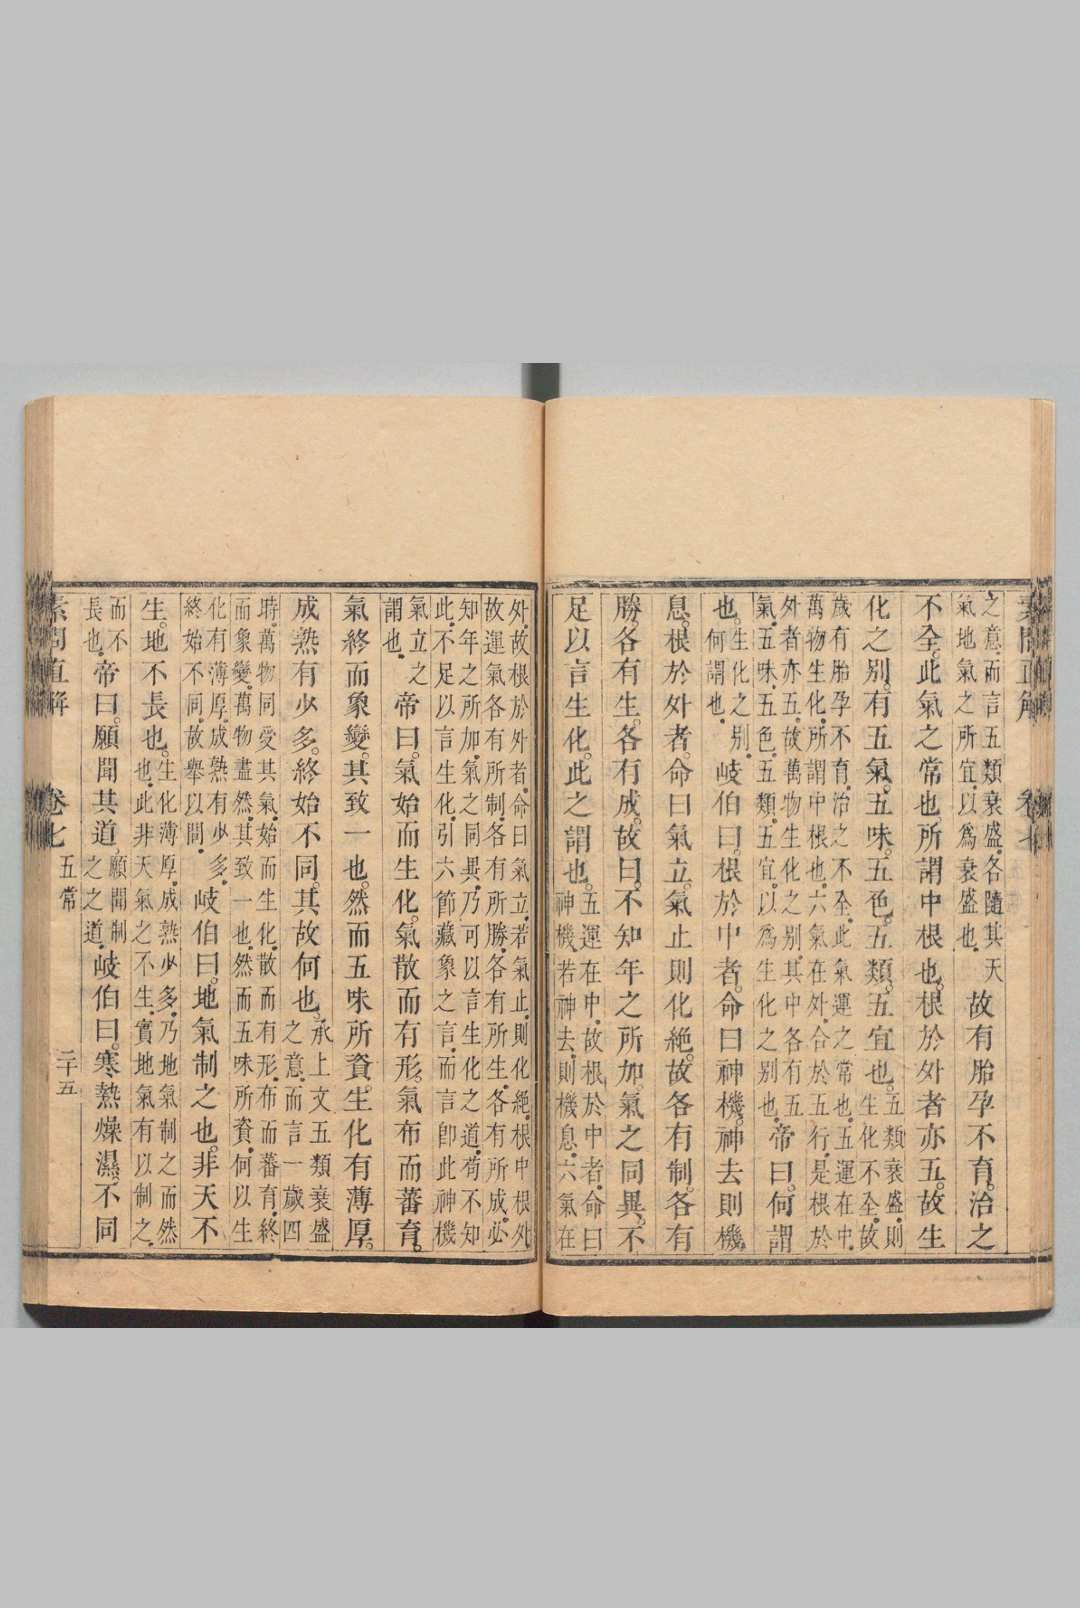 之意而言五類衰盛各隨其天
氣地氣之所宜以爲衰盛也
故有胎孕不育治之
不全此氣之常也所謂中根也根於外者亦五故生
化之别有五氣五味五色五類五宜也
五類衰盛則
生化不全故
歲有胎孕不育治之不全此氣運之常也五運在中
萬物生化所謂中根也六氣在外合於五行是根於
外者亦五故萬物生化之别其中各有五
氣五味五色五類五宜以爲生化之别也
帝曰何謂
也
生化之别
何謂也
岐伯曰根於中者命曰神機神去則機
息根於外者命曰氣立氣止則化絶故各有制各有
勝各有生各有成故曰不知年之所加氣之同異不
足以言生化此之謂也
五運在中故根於中者命曰
神機若神去則機息六氣在
外故根於外者命曰氣立若氣止則化絶根中根外
故運氣各有所制各有所勝各有所生各有所成必
知年之所加氣之同異乃可以言生化之道苟不知
此不足以言生化引六節藏象之言而言卽此神機
氣立之
謂也
帝曰氣始而生化氣散而有形氣布而蕃育
氣終而象變其致一也然而五味所資生化有薄厚
成熟有少多終始不同其故何也
承上文五類衰盛
之意而言一歲四
時萬物同受其氣始而生化散而有形布而蕃育終
而象變萬物盡然其致一也然而五味所資何以生
化有薄厚成熟有少多
終始不同故舉以問
岐伯曰地氣制之也非天不
生地不長也
生化薄厚成熟少多乃地氣制之而然
也此非天氣之不生實地氣有以制之
而不
長也
帝曰願聞其道
願聞制
之之道
岐伯曰寒熱燥濕不同
素問直解
卷七
五常
二十五